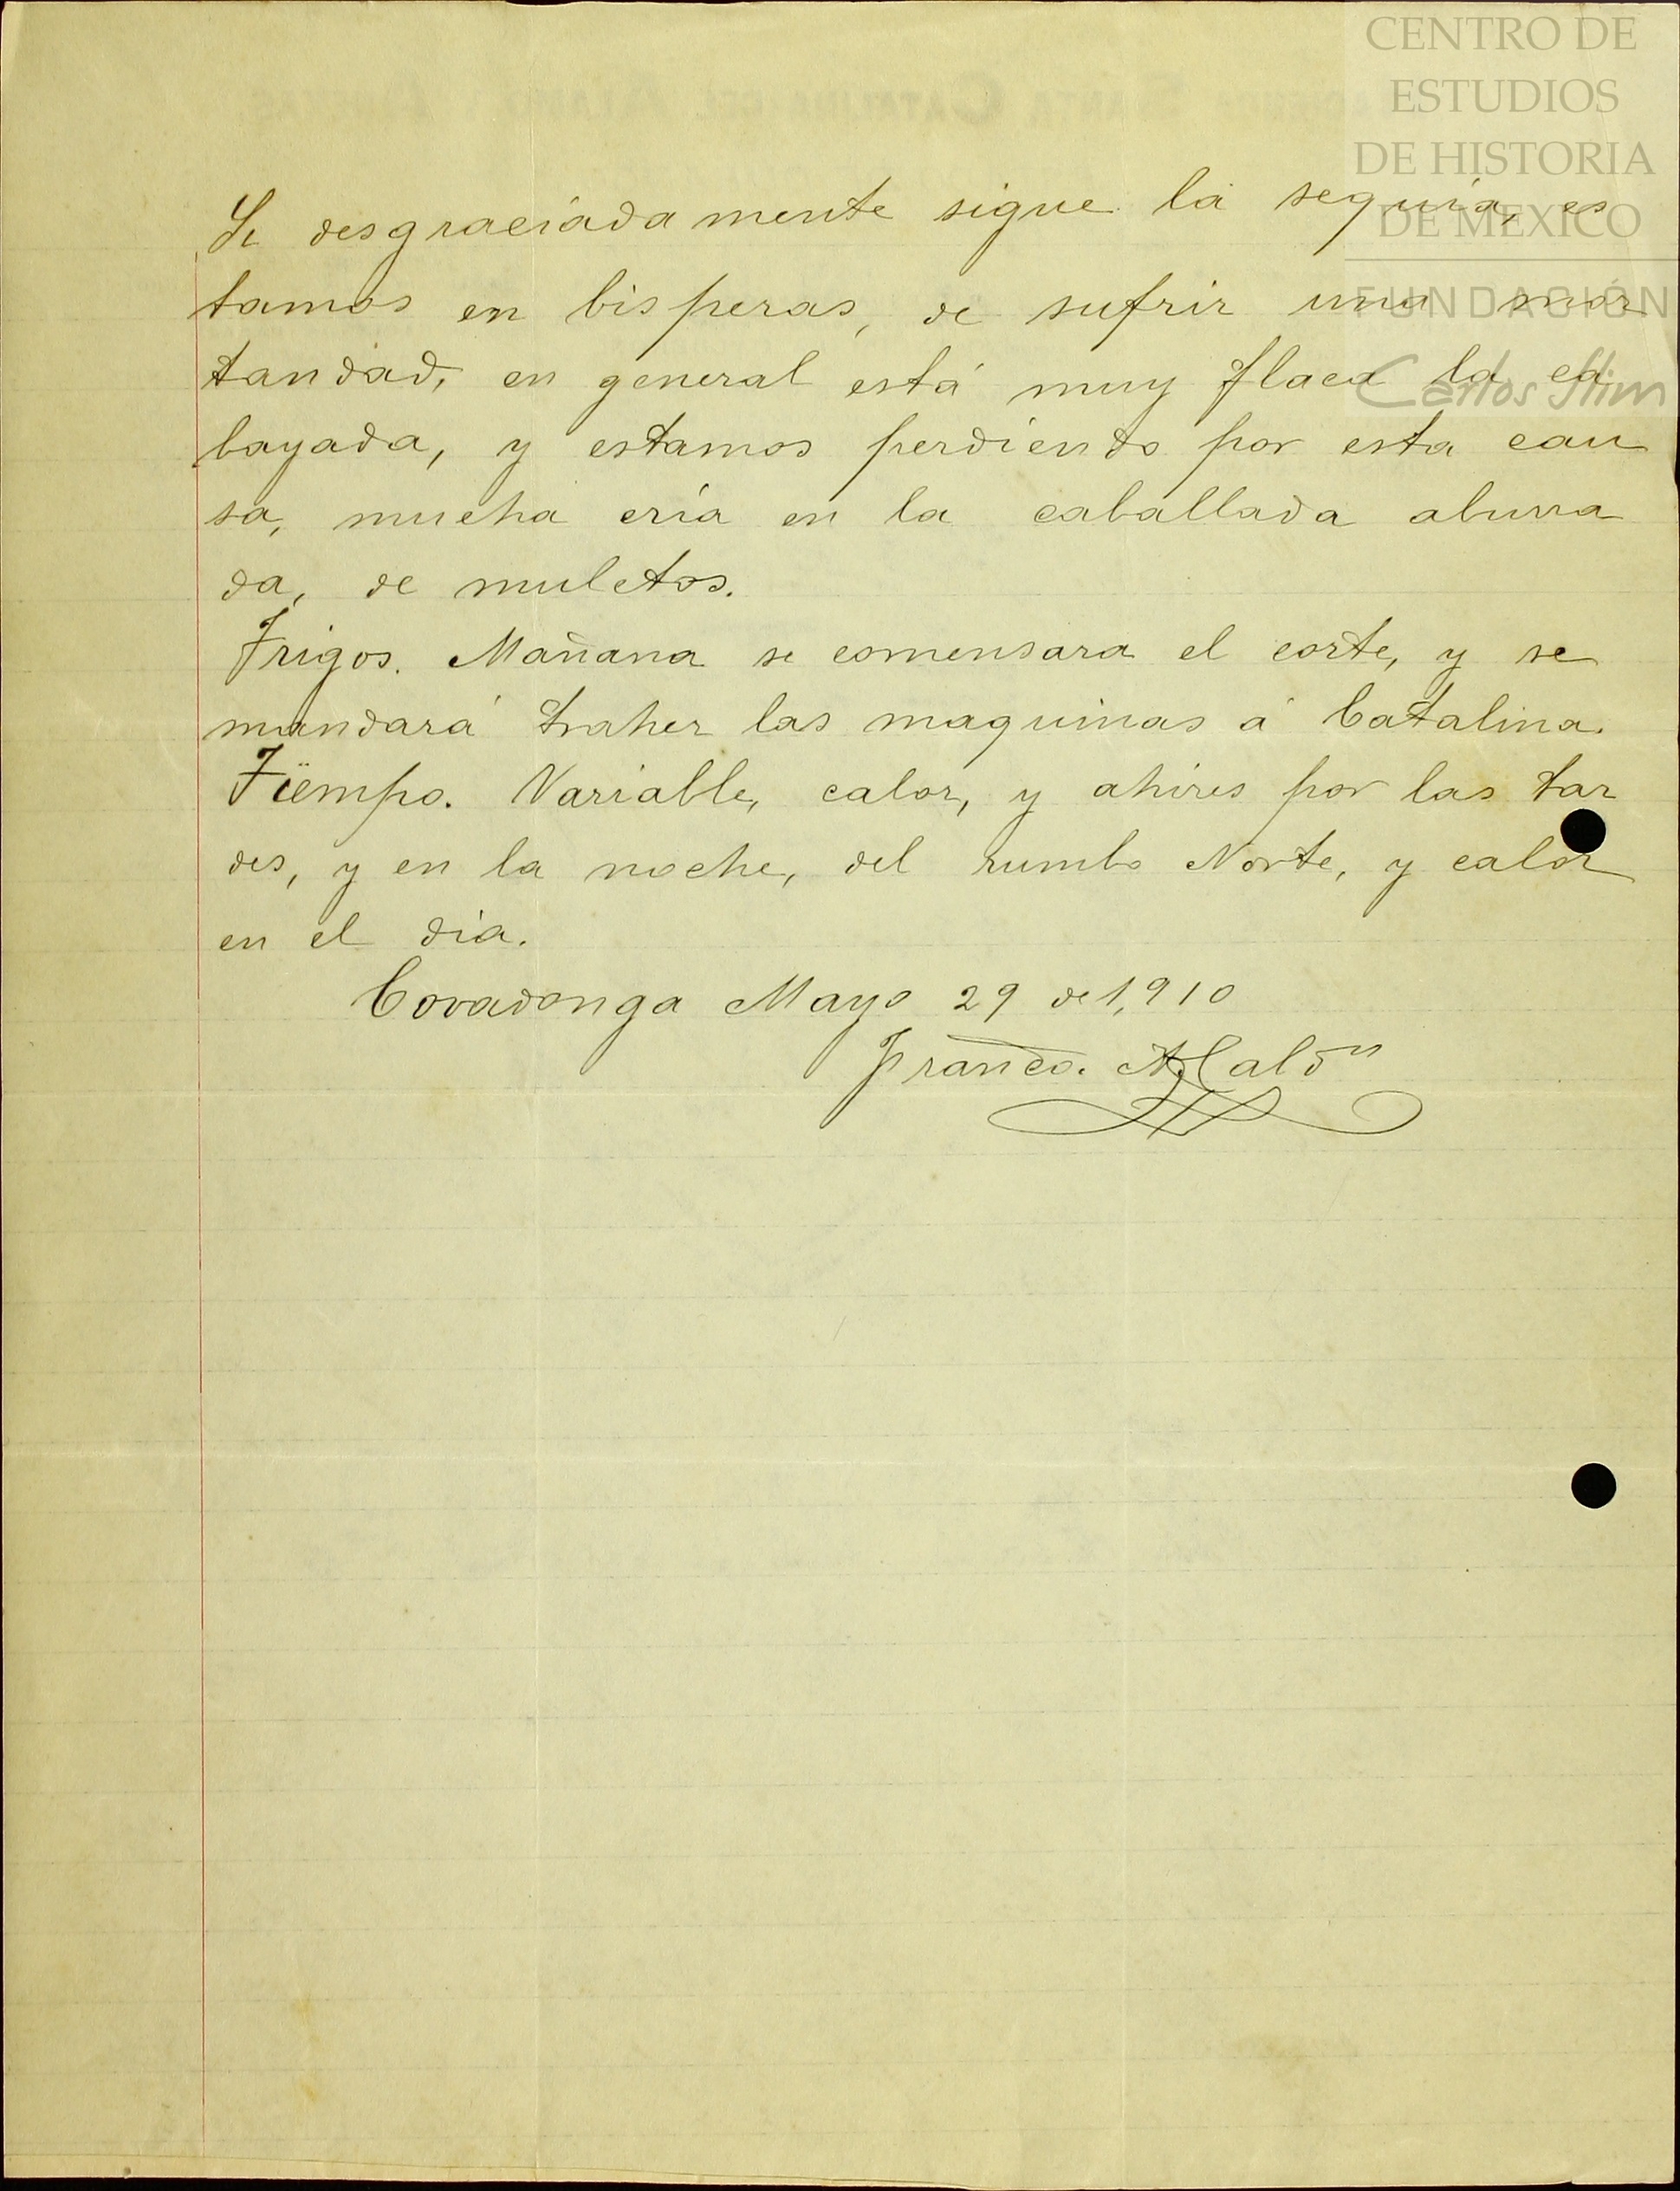 CENTRO DE
ESTUDIOS
DE HISTORIA
DE MEXICO
FUNDACIÓN
Carlos Slim
Si desgraciadamente sigue la sequia, es
tamos en bisperas, de sufrir una mor
tandad, en general está muy flaca la ca
bayada, y estamos perdiendo por esta cau
sa, mucha cría en la caballada aburra
da, de muletos.
Trigos. Mañana se comensara el corte, y se
mandará traher las maquinas á Catalina.
Tiempo. Variable, calor, y ahires por las tar
des, y en la noche, del rumbo Norte, y calor
en el dia.
Covadonga Mayo 29 de 1,910
Franco.